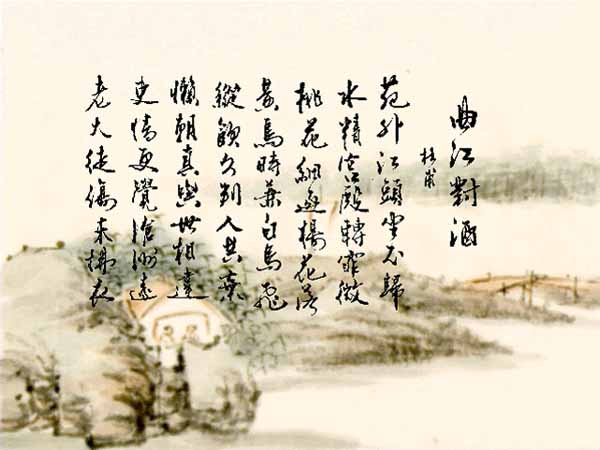 曲江對酒
杜甫
苑外江頭坐不歸
水精宮殿轉霏微
桃花細逐楊花落
黃鳥時兼白鳥飛
縱飲久判人共棄
懶朝真與世相違
吏情更覺滄洲遠
老大徒傷未拂衣